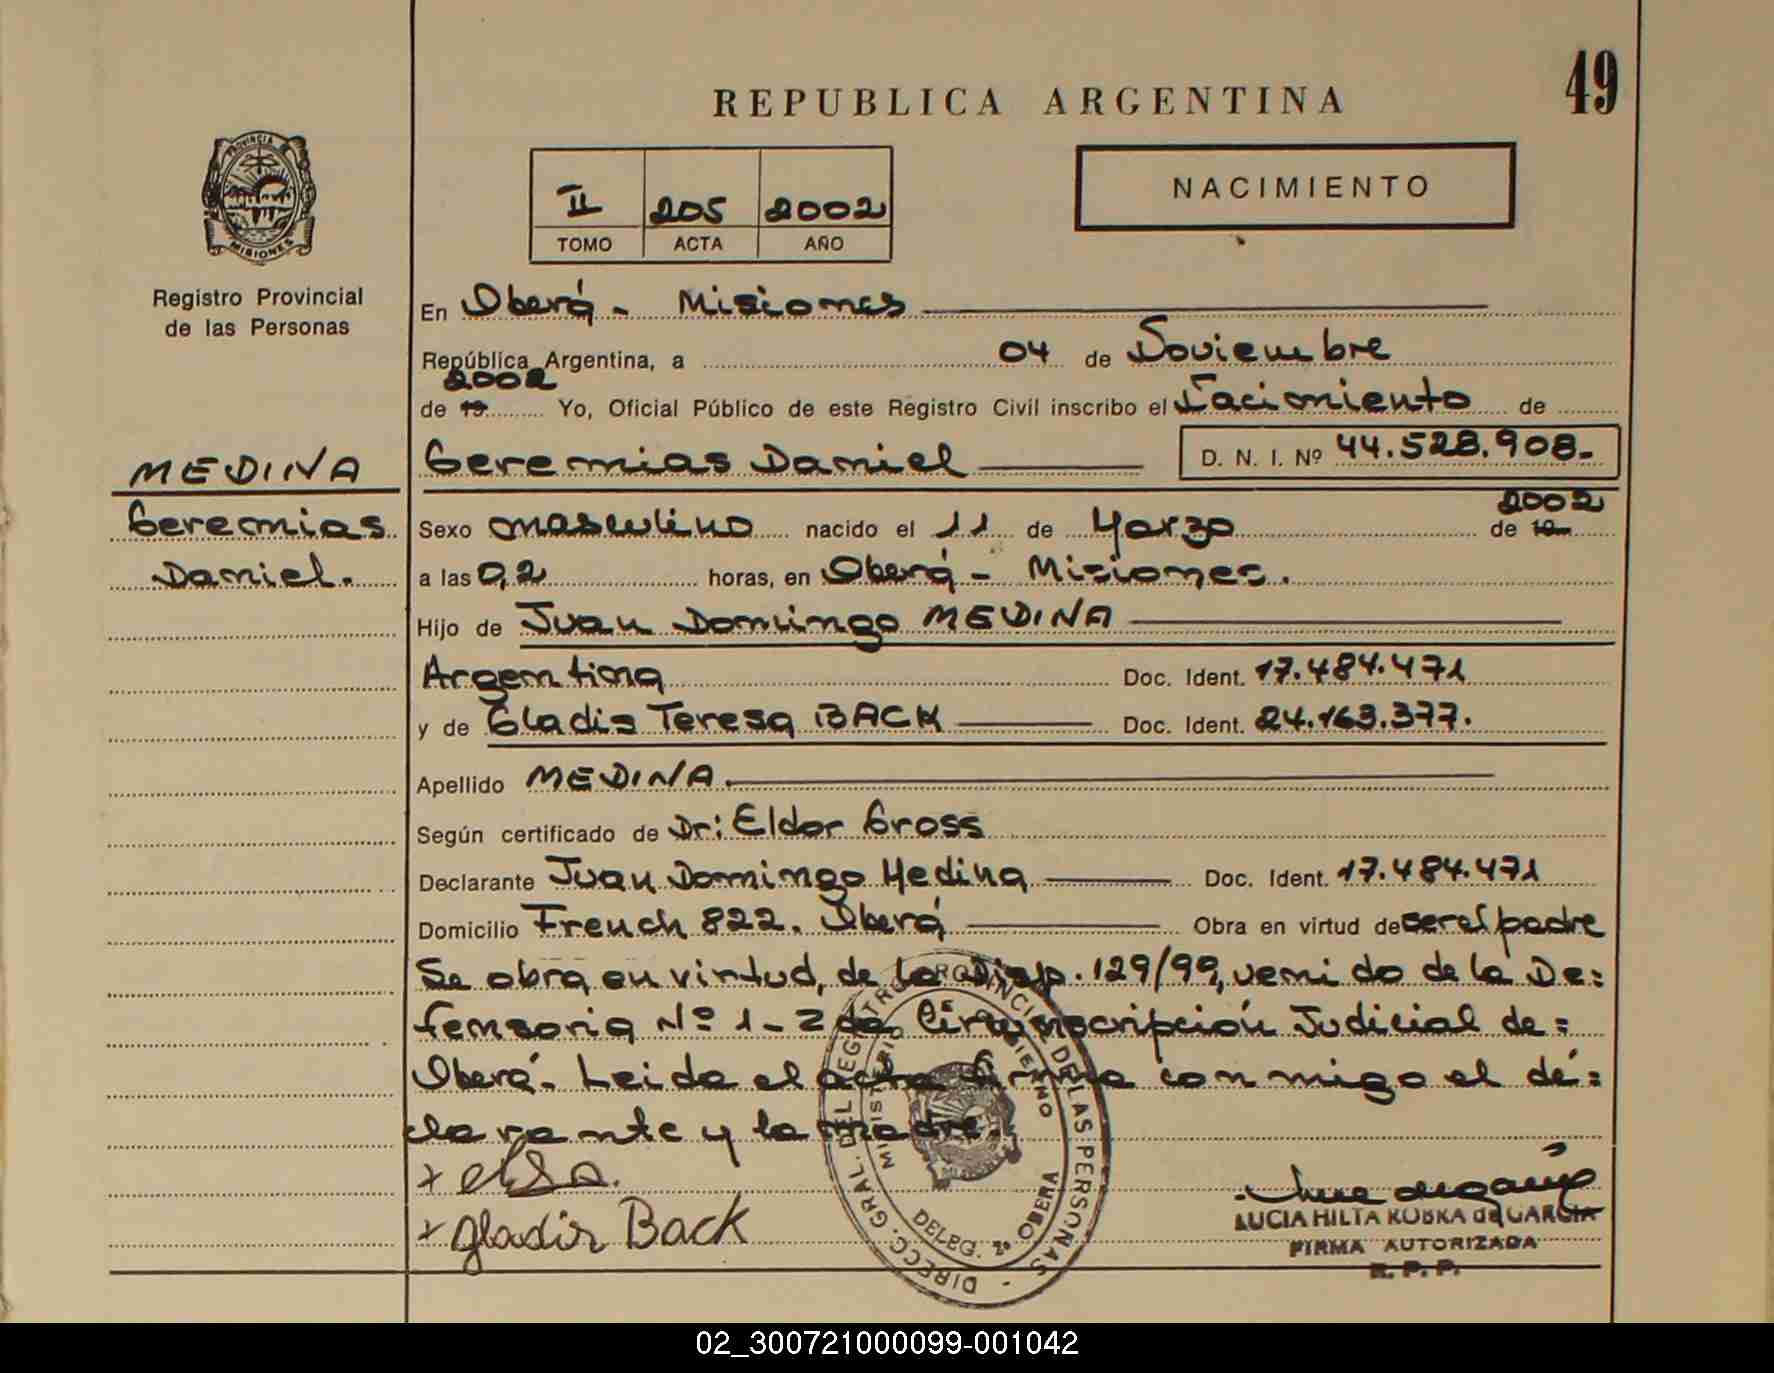 49
REPUBLICA ARGENTINA
NACIMIENTO
II 205 2002
TOMO ACTA AÑO
PROVINCIA
MISIONES
Registro Provincial
de las Personas
En Oberá - Misiones
República Argentina, a 04 de Noviembre
2002
de 19 Yo, Oficial Público de este Registro Civil inscribo el Nacimiento de
MEDINA
Geremias Daniel D. N. I. Nº 44.528.908.-
2002
Geremias
Sexo masculino nacido el 11 de Marzo de 19
Daniel.
a las 0,2 horas, en Oberá - Misiones.
Hijo de Juan Domingo MEDINA
Argentina Doc. Ident. 17.484.471
y de Gladis Teresa BACK Doc. Ident. 24.163.377.
Apellido MEDINA.
Según certificado de Dr: Eldor Gross
Declarante Juan Domingo Medina Doc. Ident. 17.484.471
Domicilio French 822. Oberá Obra en virtud de ser el padre
Se obra en virtud, de la Disp. 129/99, venido de la De=
fensoria Nº 1-2 da Circunscripción Judicial de=
Oberá. Leida el acta firma conmigo el de=
clarante y la madre.
+
+ Gladis Back
DIRECC. GRAL. DEL REGISTRO PROVINCIAL DE LAS PERSONAS
MINISTERIO GOBIERNO
DELEG. 2º OBERA
LUCIA HILTA KUBKA de GARCIA
FIRMA AUTORIZADA
R. P. P.
02_300721000099-001042